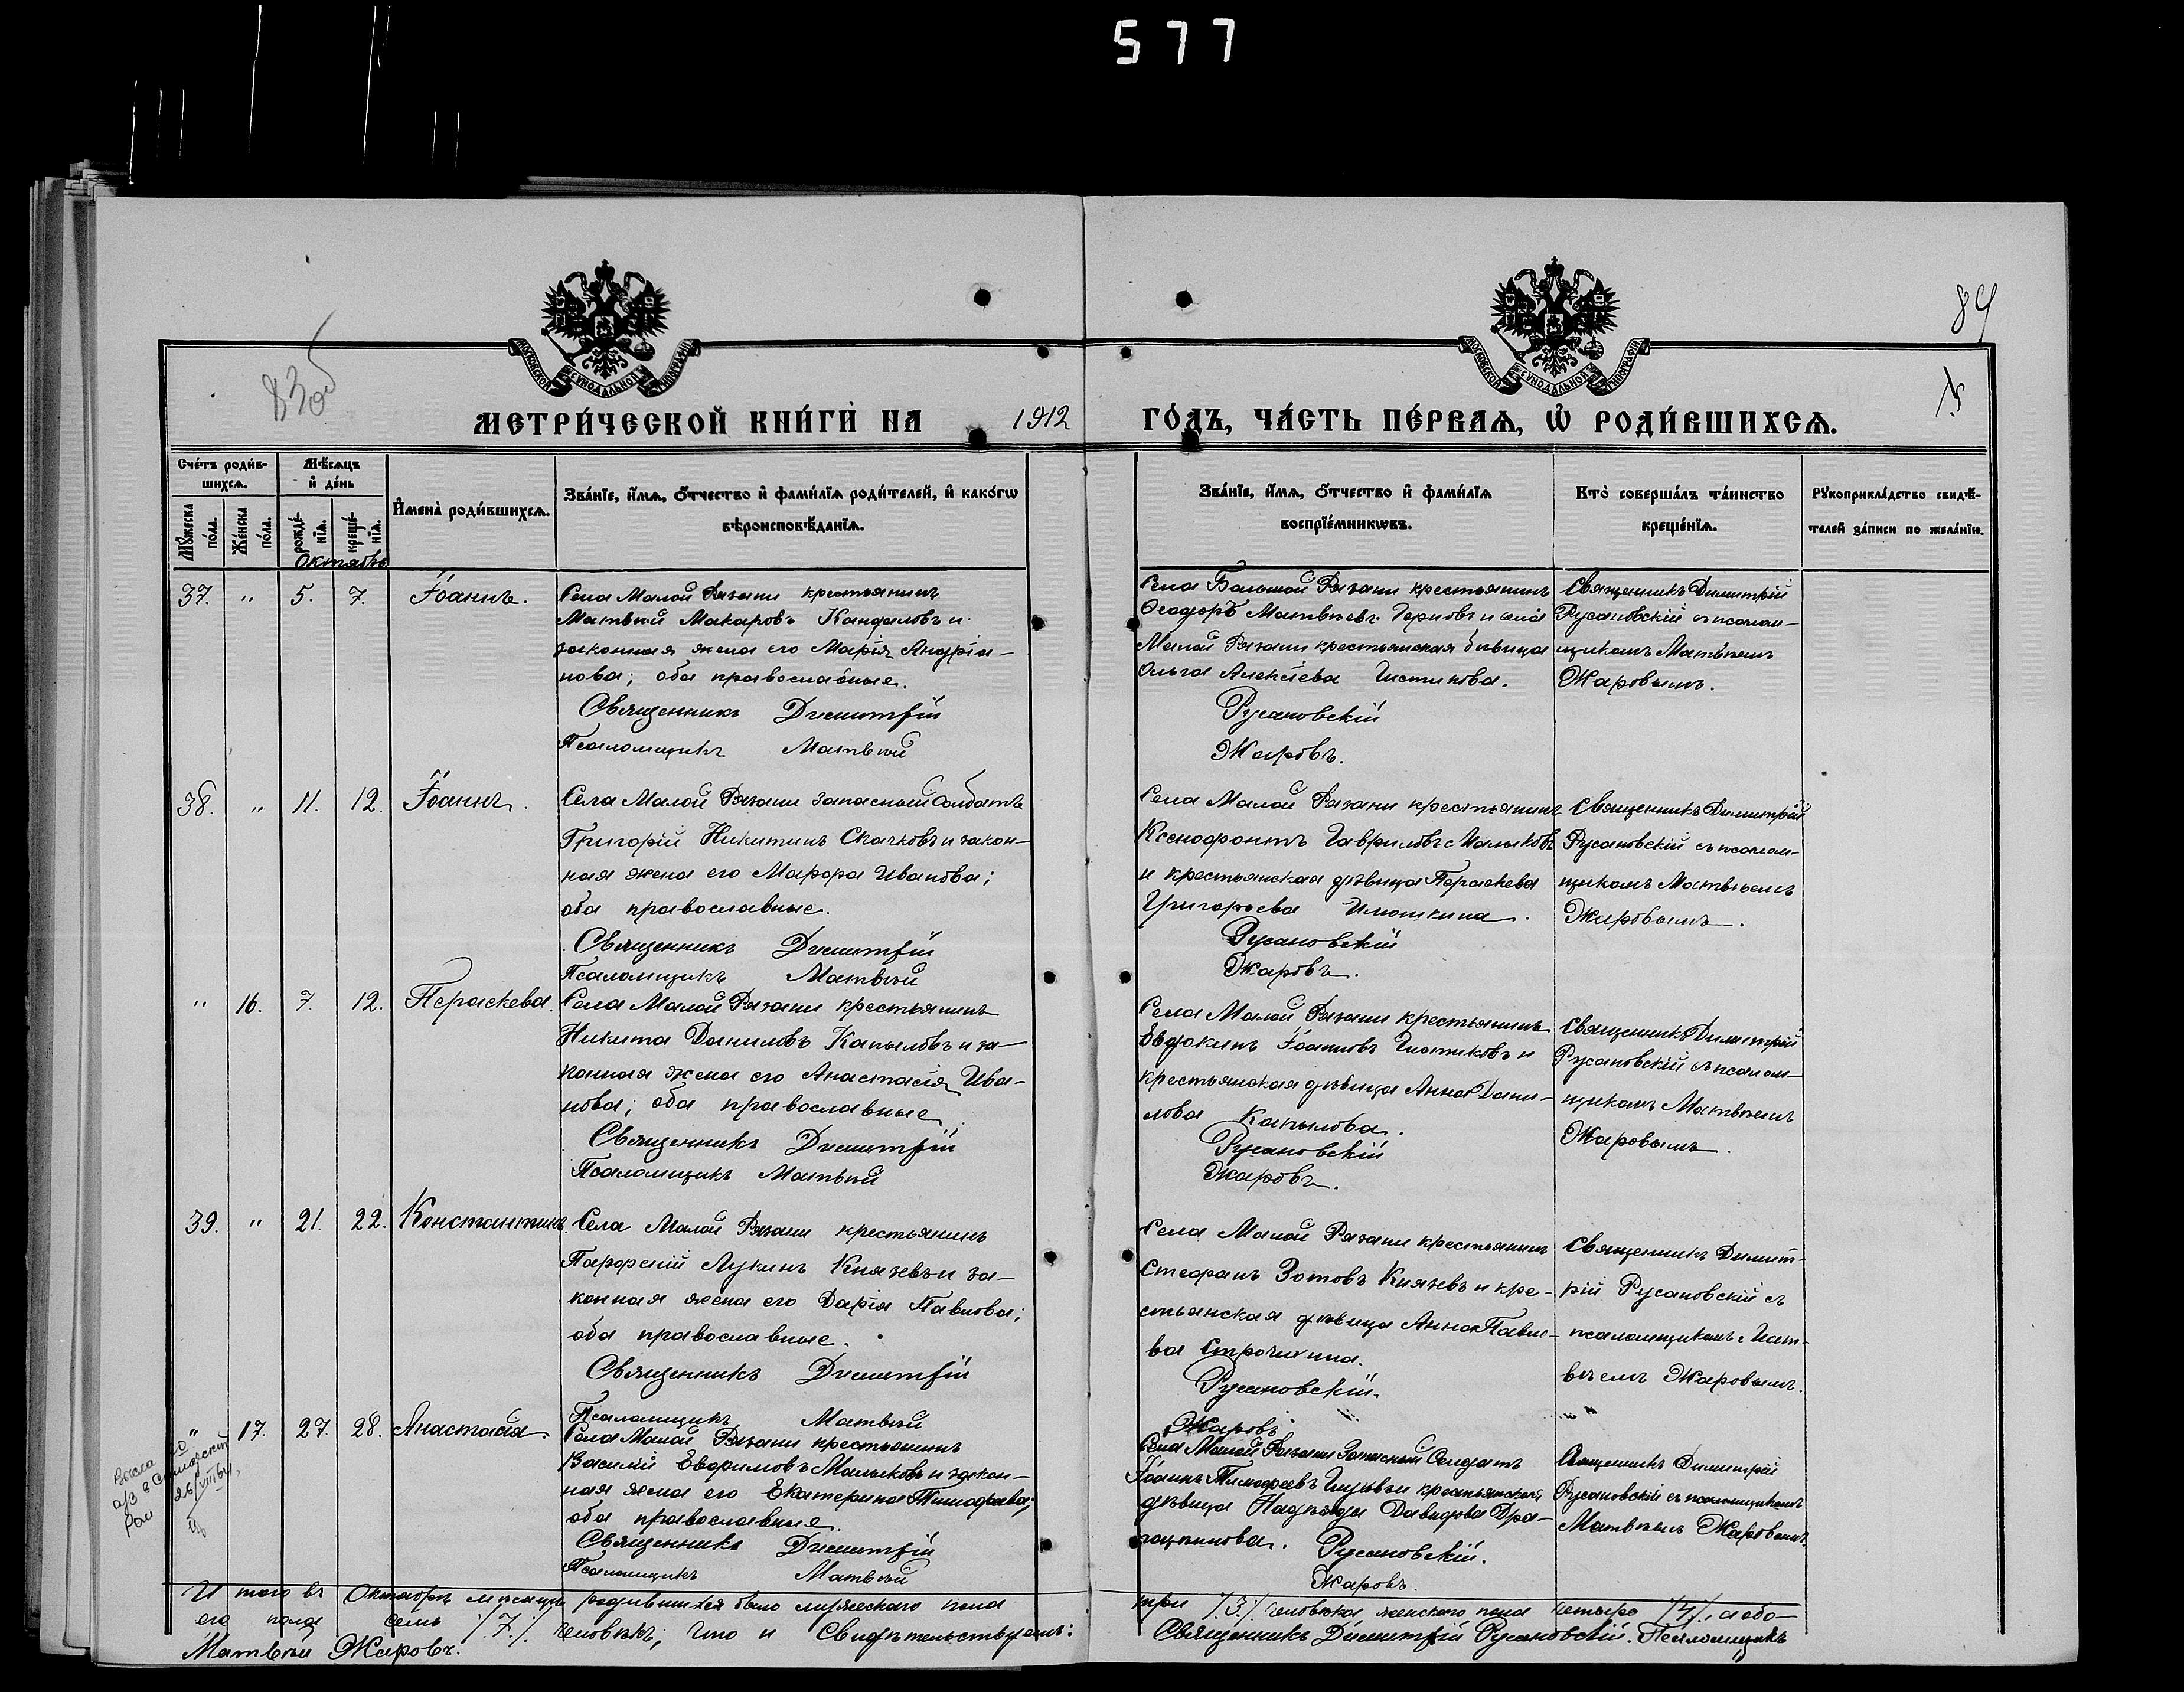 577
84
83об
МОСКОВСКОЙ СѴНОДАЛЬНОЙ ТИПОГРАФІИ
МОСКОВСКОЙ СѴНОДАЛЬНОЙ ТИПОГРАФІИ
МЕТРИ́ЧЕСКОЙ КНИ́ГИ НА 1912 ГО́ДЪ, ЧА́СТЬ ПЕ́РВАѦ, Ѽ РОДИ́ВШИХСѦ.
Сче́тъ роди́в-
шихсѧ.
Мѣ́сѧцъ
и҆ де́нь
И҆мена̀ роди́вшихсѧ.
Зва́нїе, и҆́мѧ, ѻ҆́тчество и҆ фами́лїѧ роди́телей, и҆ како́гѡ
вѣроисповѣ́данїѧ.
Зва́нїе, и҆́мѧ, ѻ҆́тчество и҆ фами́лїѧ
воспрїе́мникѡвъ.
Кто̀ соверша́лъ та́инство
креще́нїѧ.
Рꙋкоприкла́дство свидѣ́-
телей за́писи по жела́нїю.
Мꙋ́жеска
по́ла.
Же́нска
по́ла.
рожде́-
нїѧ.
креще́-
нїѧ.
Октябрь
37. " 5. 7. Іоаннъ.
Села Малой Рязани крестьянинъ
Матвѣй Макаровъ Кандаловъ и
законная жена его Марія Андріа-
нова; оба православные.
Священникъ Димитрій
Псаломщикъ Матвѣй
Села Большой Рязани крестьянинъ
Ѳеодоръ Матвѣевъ Черновъ и села
Малой Рязани крестьянская дѣвица
Ольга Алексіева Чистикова.
Русановскій
Жаровъ.
Священникъ Димитрій
Русановскій съ псалом-
щикомъ Матвѣемъ
Жаровымъ.
38. " 11. 12. Іоаннъ.
Села Малой Рязани запасный солдатъ
Григорій Никитинъ Скачковъ и закон-
ная жена его Марфа Иванова;
оба православные.
Священникъ Димитрій
Псаломщикъ Матвѣй
Села Малой Рязани крестьянинъ
Ксенофонтъ Гавриловъ Малыковъ
и крестьянская дѣвица Параскева
Григорьева Илюшкина.
Русановскій
Жаровъ.
Священникъ Димитрій
Русановскій съ псалом-
щикомъ Матвѣемъ
Жаровымъ.
" 16. 7. 12. Параскева.
Села Малой Рязани крестьянинъ
Никита Даниловъ Капыловъ и за-
конная жена его Анастасія Ива-
нова; оба православные
Священникъ Димитрій
Псаломщикъ Матвѣй
Села Малой Рязани крестьянинъ
Евдокимъ Іоанновъ Чистиковъ и
крестьянская дѣвица Анна Дани-
лова Капылова.
Русановскій
Жаровъ.
Священникъ Димитрій
Русановскій съ псалом-
щикомъ Матвѣемъ
Жаровымъ.
39. " 21. 22. Константинъ.
Села Малой Рязани крестьянинъ
Парфеній Лукинъ Князевъ и за-
конная жена его Дарія Павлова;
оба православные.
Священникъ Димитрій
Псаломщикъ Матвѣй
Села Малой Рязани крестьянинъ
Стефанъ Зотовъ Князевъ и кре-
стьянская дѣвица Анна Павло-
ва Строчихина.
Русановскій.
Жаровъ
Священникъ Димит-
рій Русановскій съ
псаломщикомъ Мат-
вѣемъ Жаровымъ.
" 17. 27. 28. Анастасія.
Села Малой Рязани крестьянинъ
Василій Евфимовъ Малыковъ и закон-
ная жена его Екатерина Тимофеева;
оба православные.
Священникъ Димитрій
Псаломщикъ Матвѣй
Села Малой Рязани Запасный Солдатъ
Іоаннъ Тимофеевъ и крестьянская
дѣвица Надежда Давидова
Русановскій.
Жаровъ.
Священникъ Димитрій
Русановскій съ псаломщикомъ
Матвѣемъ Жаровымъ.
Итого въ Октябрѣ мѣсяцѣ родившихся было мужескаго пола три /3/ человѣка, женскаго пола четыре /4/, а обо-
его пола семь /7/ человѣкъ; Что и свидѣтельствуемъ: Священникъ Димитрій Русановскій. Псаломщикъ
Матвѣй Жаровъ.